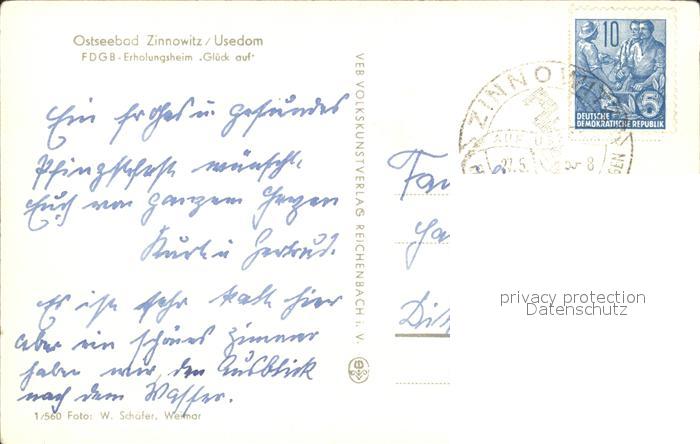 Ostseebad Zinnowitz / Usedom
FDGB-Erholungsheim „Glück auf"
Ein frohes u. gesundes
Pfingstfest wünscht
Euch von ganzem Herzen
Kurt u. Gertrud.
Es ist sehr kalt hier
aber ein schönes Zimmer
haben wir, den Ausblick
nach dem Wasser.
1/560 Foto: W. Schäfer, Weimar
VEB VOLKSKUNSTVERLAG REICHENBACH i. V.
10
5
DEUTSCHE
DEMOKRATISCHE REPUBLIK
ZINNOWITZ
27.5. -8
Fam
privacy protection
Datenschutz